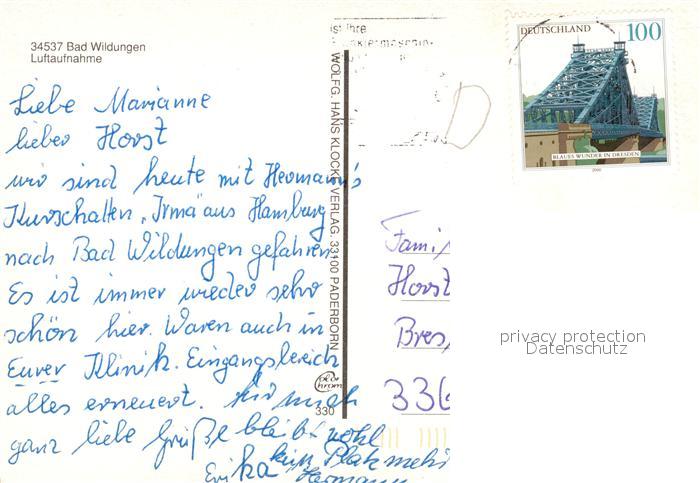 34537 Bad Wildungen
Luftaufnahme
Liebe Marianne
lieber Horst
wir sind heute mit Hermann's
Kurschatten „Irma" aus Hamburg
nach Bad Wildungen gefahren
Es ist immer wieder sehr
schön hier. Waren auch in
Eurer Klinik. Eingangsbereich
alles erneuert.
ganz liebe Grüße bleibt wohl
Erika kein Platz mehr
Hermann
WOLFG. HANS KLOCKE VERLAG, 33100 PADERBORN
330
ist Ihre
DEUTSCHLAND 100
BLAUES WUNDER IN DRESDEN
2000
D
Fami
Horst
Bres
336
privacy protection
Datenschutz